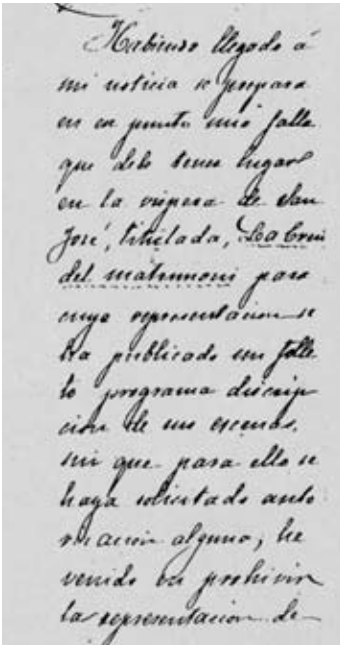 Habiendo llegado á
mi noticia se prepara
en ese punto una falla
que debe tener lugar
en la vispera de San
José, titulada, La Creu
del matrimoni para
cuya representacion se
ha publicado un folle
to programa discrip
cion de sus escenas,
sin que para ello se
haya solicitado auto
rizacion alguna, he
venido en prohivir
la representacion de